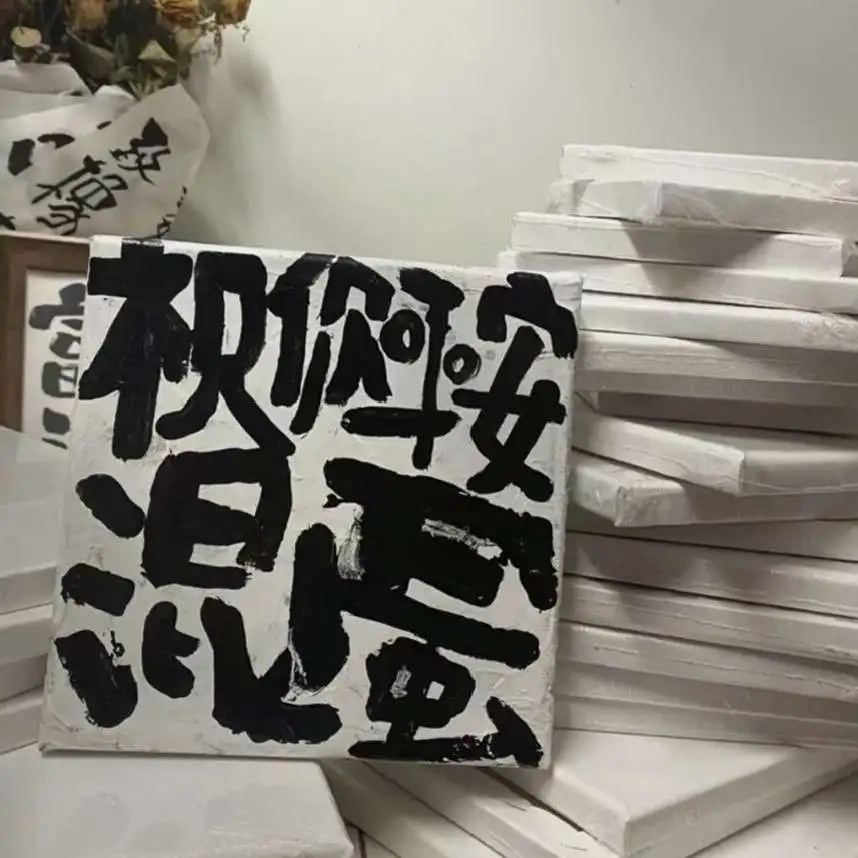 祝你平安
混蛋